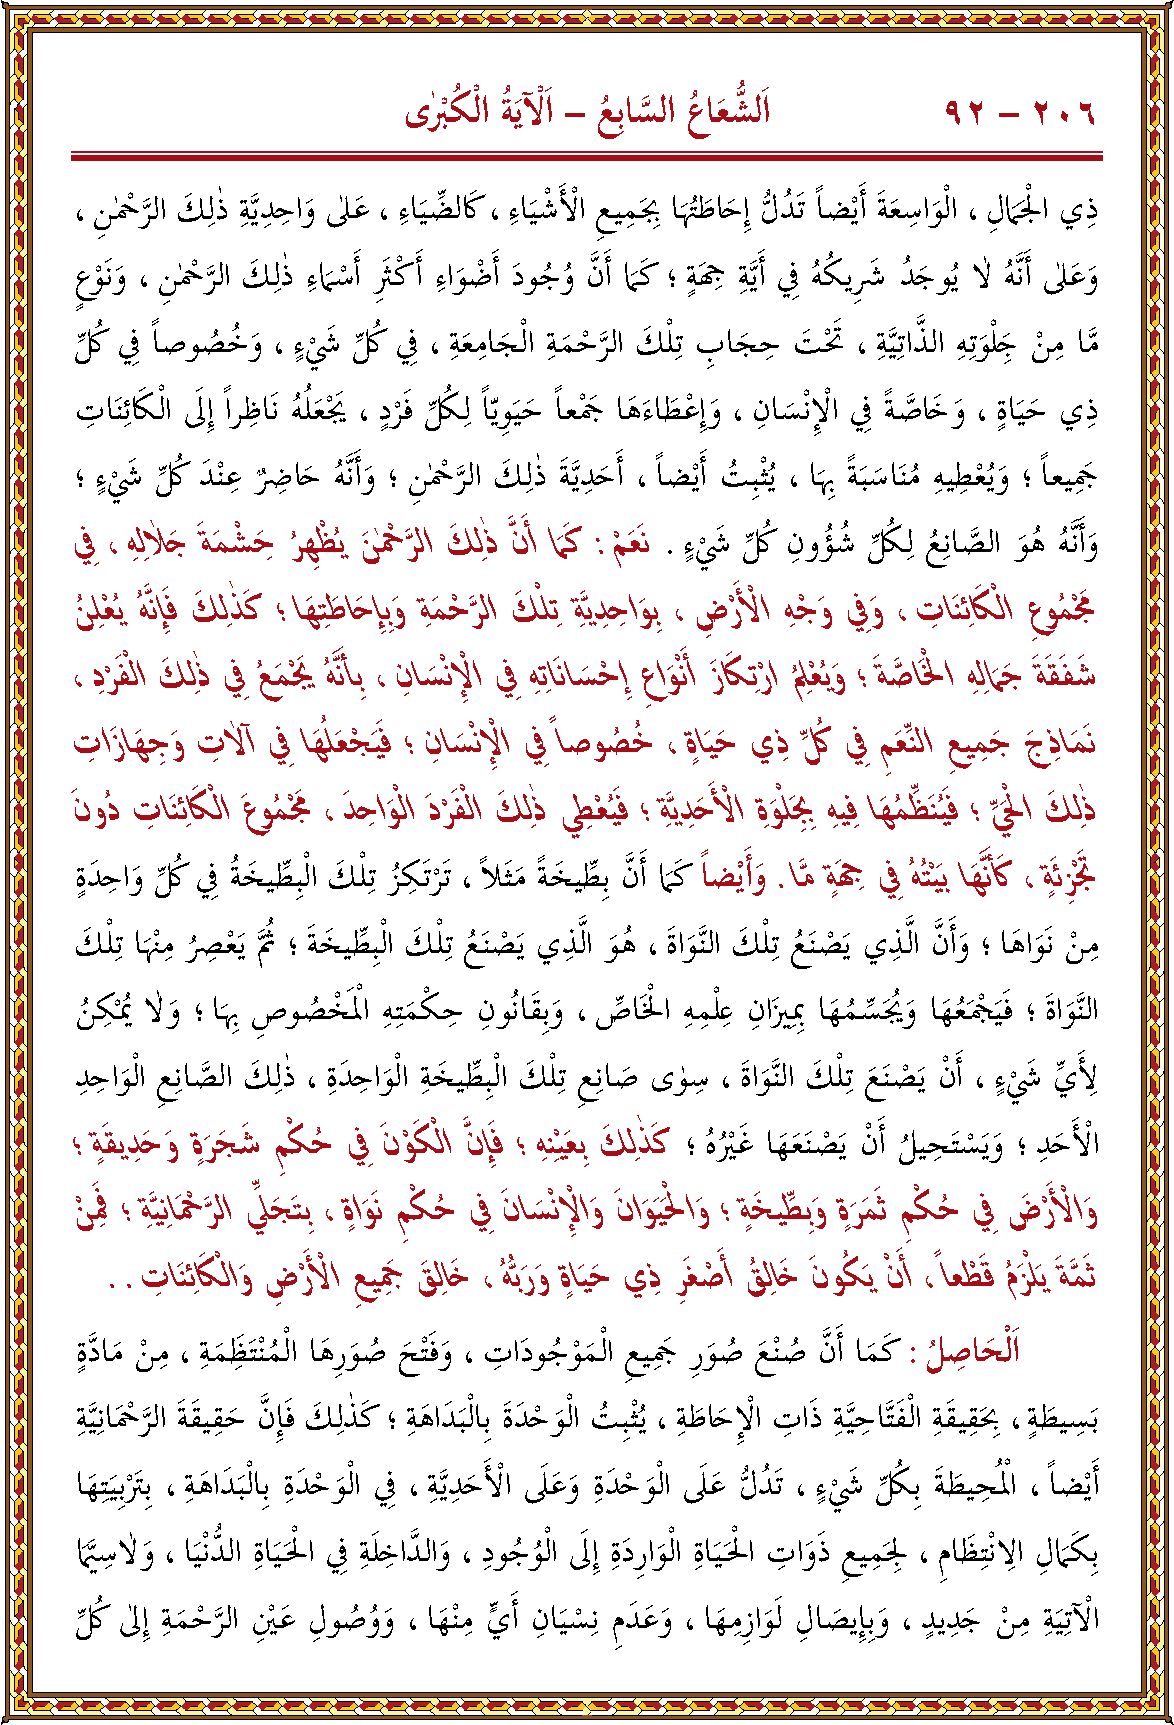 ٢٠٦ – ٩٢ اَلشُّعَاعُ السَّابِعُ – اَلْآيَةُ الْكُبْرٰى
ذِي الْجَمَالِ ، الْوَاسِعَةَ أَيْضاً تَدُلُّ إِحَاطَتُهَا بِجَمِيعِ الْأَشْيَاءِ ، كَالضِّيَاءِ ، عَلٰى وَاحِدِيَّةِ ذٰلِكَ الرَّحْمٰنِ ،
وَعَلٰى أَنَّهُ لَا يُوجَدُ شَرِيكُهُ فِي أَيَّةِ جِهَةٍ ؛ كَمَا أَنَّ وُجُودَ أَضْوَاءِ أَكْثَرِ أَسْمَاءِ ذٰلِكَ الرَّحْمٰنِ ، وَنَوْعٍ
مَّا مِنْ جَلْوَتِهِ الذَّاتِيَّةِ ، تَحْتَ حِجَابِ تِلْكَ الرَّحْمَةِ الْجَامِعَةِ ، فِي كُلِّ شَيْءٍ ، وَخُصُوصاً فِي كُلِّ
ذِي حَيَاةٍ ، وَخَاصَّةً فِي الْإِنْسَانِ ، وَإِعْطَاءَهَا جَمْعاً حَيَوِيّاً لِكُلِّ فَرْدٍ ، يَجْعَلُهُ نَاظِراً إِلَى الْكَائِنَاتِ
جَمِيعاً ؛ وَيُعْطِيهِ مُنَاسَبَةً بِهَا ، يُثْبِتُ أَيْضاً ، أَحَدِيَّةَ ذٰلِكَ الرَّحْمٰنِ ؛ وَأَنَّهُ حَاضِرٌ عِنْدَ كُلِّ شَيْءٍ ؛
وَأَنَّهُ هُوَ الصَّانِعُ لِكُلِّ شُؤُونِ كُلِّ شَيْءٍ . نَعَمْ : كَمَا أَنَّ ذٰلِكَ الرَّحْمٰنَ يُظْهِرُ حِشْمَةَ جَلَالِهِ ، فِي
مَجْمُوعِ الْكَائِنَاتِ ، وَفِي وَجْهِ الْأَرْضِ ، بِوَاحِدِيَّةِ تِلْكَ الرَّحْمَةِ وَبِإِحَاطَتِهَا ؛ كَذٰلِكَ فَإِنَّهُ يُعْلِنُ
شَفَقَةَ جَمَالِهِ الْخَاصَّةَ ؛ وَيُعْلِمُ ارْتِكَازَ أَنْوَاعِ إِحْسَانَاتِهِ فِي الْإِنْسَانِ ، بِأَنَّهُ يَجْمَعُ فِي ذٰلِكَ الْفَرْدِ ،
نَمَاذِجَ جَمِيعِ النِّعَمِ فِي كُلِّ ذِي حَيَاةٍ ، خُصُوصاً فِي الْإِنْسَانِ ؛ فَيَجْعَلُهَا فِي آلَاتِ وَجِهَازَاتِ
ذٰلِكَ الْحَيِّ ؛ فَيُنَظِّمُهَا فِيهِ بِجَلْوَةِ الْأَحَدِيَّةِ ؛ فَيُعْطِي ذٰلِكَ الْفَرْدَ الْوَاحِدَ ، مَجْمُوعَ الْكَائِنَاتِ دُونَ
تَجْزِئَةٍ ، كَأَنَّهَا بَيْتُهُ فِي جِهَةٍ مَّا . وَأَيْضاً كَمَا أَنَّ بِطِّيخَةً مَثَلاً ، تَرْتَكِزُ تِلْكَ الْبِطِّيخَةُ فِي كُلِّ وَاحِدَةٍ
مِنْ نَوَاهَا ؛ وَأَنَّ الَّذِي يَصْنَعُ تِلْكَ النَّوَاةَ ، هُوَ الَّذِي يَصْنَعُ تِلْكَ الْبِطِّيخَةَ ؛ ثُمَّ يَعْصِرُ مِنْهَا تِلْكَ
النَّوَاةَ ؛ فَيَجْمَعُهَا وَيُجَسِّمُهَا بِمِيزَانِ عِلْمِهِ الْخَاصِّ ، وَبِقَانُونِ حِكْمَتِهِ الْمَخْصُوصِ بِهَا ؛ وَلَا يُمْكِنُ
لِأَيِّ شَيْءٍ ، أَنْ يَصْنَعَ تِلْكَ النَّوَاةَ ، سِوٰى صَانِعِ تِلْكَ الْبِطِّيخَةِ الْوَاحِدَةِ ، ذٰلِكَ الصَّانِعِ الْوَاحِدِ
الْأَحَدِ ؛ وَيَسْتَحِيلُ أَنْ يَصْنَعَهَا غَيْرُهُ ؛ كَذٰلِكَ بِعَيْنِهِ ؛ فَإِنَّ الْكَوْنَ فِي حُكْمِ شَجَرَةٍ وَحَدِيقَةٍ ؛
وَالْأَرْضَ فِي حُكْمِ ثَمَرَةٍ وَبِطِّيخَةٍ ؛ وَالْحَيَوَانَ وَالْإِنْسَانَ فِي حُكْمِ نَوَاةٍ ، بِتَجَلِّي الرَّحْمَانِيَّةِ ؛ فَمِنْ
ثَمَّةَ يَلْزَمُ قَطْعاً ، أَنْ يَكُونَ خَالِقُ أَصْغَرِ ذِي حَيَاةٍ وَرَبُّهُ ، خَالِقَ جَمِيعِ الْأَرْضِ وَالْكَائِنَاتِ . .
اَلْحَاصِلُ : كَمَا أَنَّ صُنْعَ صُوَرِ جَمِيعِ الْمَوْجُودَاتِ ، وَفَتْحَ صُوَرِهَا الْمُنْتَظِمَةِ ، مِنْ مَادَّةٍ
بَسِيطَةٍ ، بِحَقِيقَةِ الْفَتَّاحِيَّةِ ذَاتِ الْإِحَاطَةِ ، يُثْبِتُ الْوَحْدَةَ بِالْبَدَاهَةِ ؛ كَذٰلِكَ فَإِنَّ حَقِيقَةَ الرَّحْمَانِيَّةِ
أَيْضاً ، الْمُحِيطَةَ بِكُلِّ شَيْءٍ ، تَدُلُّ عَلَى الْوَحْدَةِ وَعَلَى الْأَحَدِيَّةِ ، فِي الْوَحْدَةِ بِالْبَدَاهَةِ ، بِتَرْبِيَتِهَا
بِكَمَالِ الْاِنْتِظَامِ ، لِجَمِيعِ ذَوَاتِ الْحَيَاةِ الْوَارِدَةِ إِلَى الْوُجُودِ ، وَالدَّاخِلَةِ فِي الْحَيَاةِ الدُّنْيَا ، وَلَاسِيَّمَا
الْآتِيَةِ مِنْ جَدِيدٍ ، وَبِإِيصَالِ لَوَازِمِهَا ، وَعَدَمِ نِسْيَانِ أَيٍّ مِنْهَا ، وَوُصُولِ عَيْنِ الرَّحْمَةِ إِلٰى كُلِّ